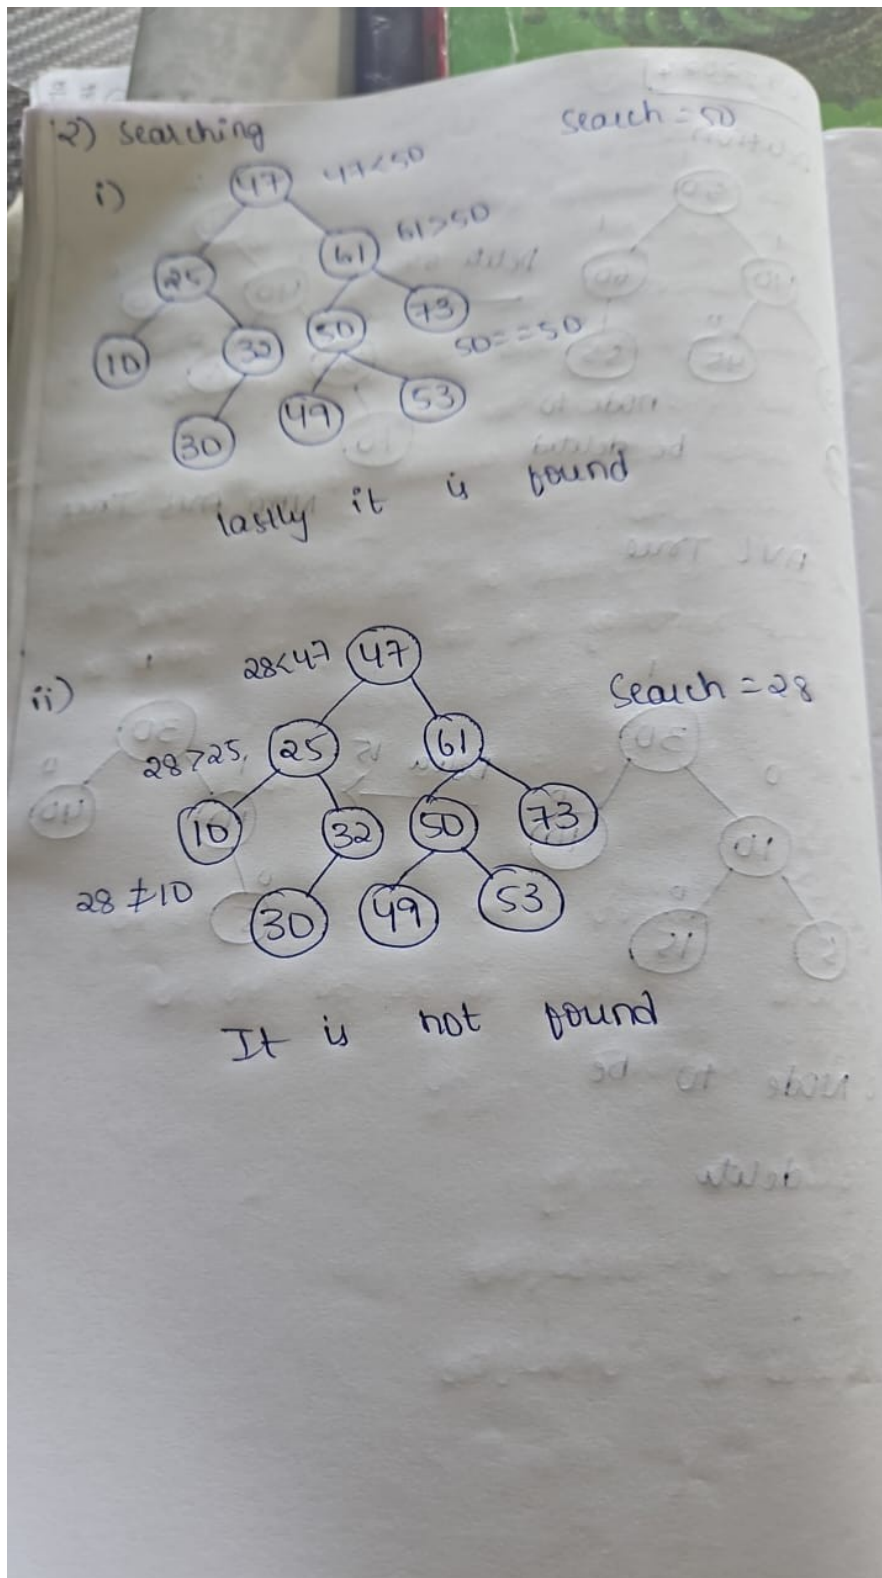 2) Searching
Search = 50
i)
47 47<50
61 61>50
25
73
50 50==50
10 32
49 53
30
lastly it is found
ii)
28<47 47
Search = 28
28>25. 25 61
10 32 50 73
28 ≠ 10
30 49 53
It is not found